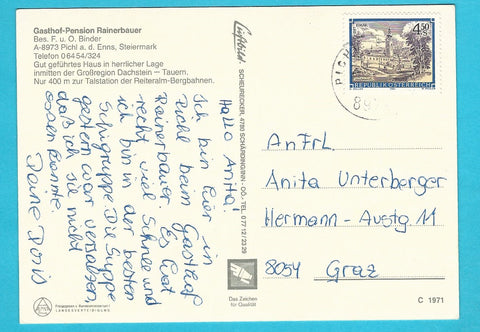 Gasthof-Pension Rainerbauer
Bes. F. u. O. Binder
A-8973 Pichl a. d. Enns, Steiermark
Telefon 0 64 54/324
Gut geführtes Haus in herrlicher Lage
inmitten der Großregion Dachstein — Tauern.
Nur 400 m zur Talstation der Reiteralm-Bergbahnen.
Hallo Anita!
Ich bin hier in
Pichl beim Gasthof
Rainerbauer. Es liegt
recht viel Schnee und
ich bin in der besten
Schigruppe. Die Suppe
gestern war versalzen,
daß ich sie nicht
essen konnte.
Deine Doris
Luftbild:
SCHEURECKER, 4780 SCHÄRDING/INN - OÖ., TEL. 0 77 12 / 23 29
Das Zeichen
für Qualität
4.50
REPUBLIK ÖSTERREICH
PICH
89
An Frl.
Anita Unterberger
Hermann-Austg. 11
8054 Graz
C 1971
LANDESVERTEIDIGUNG